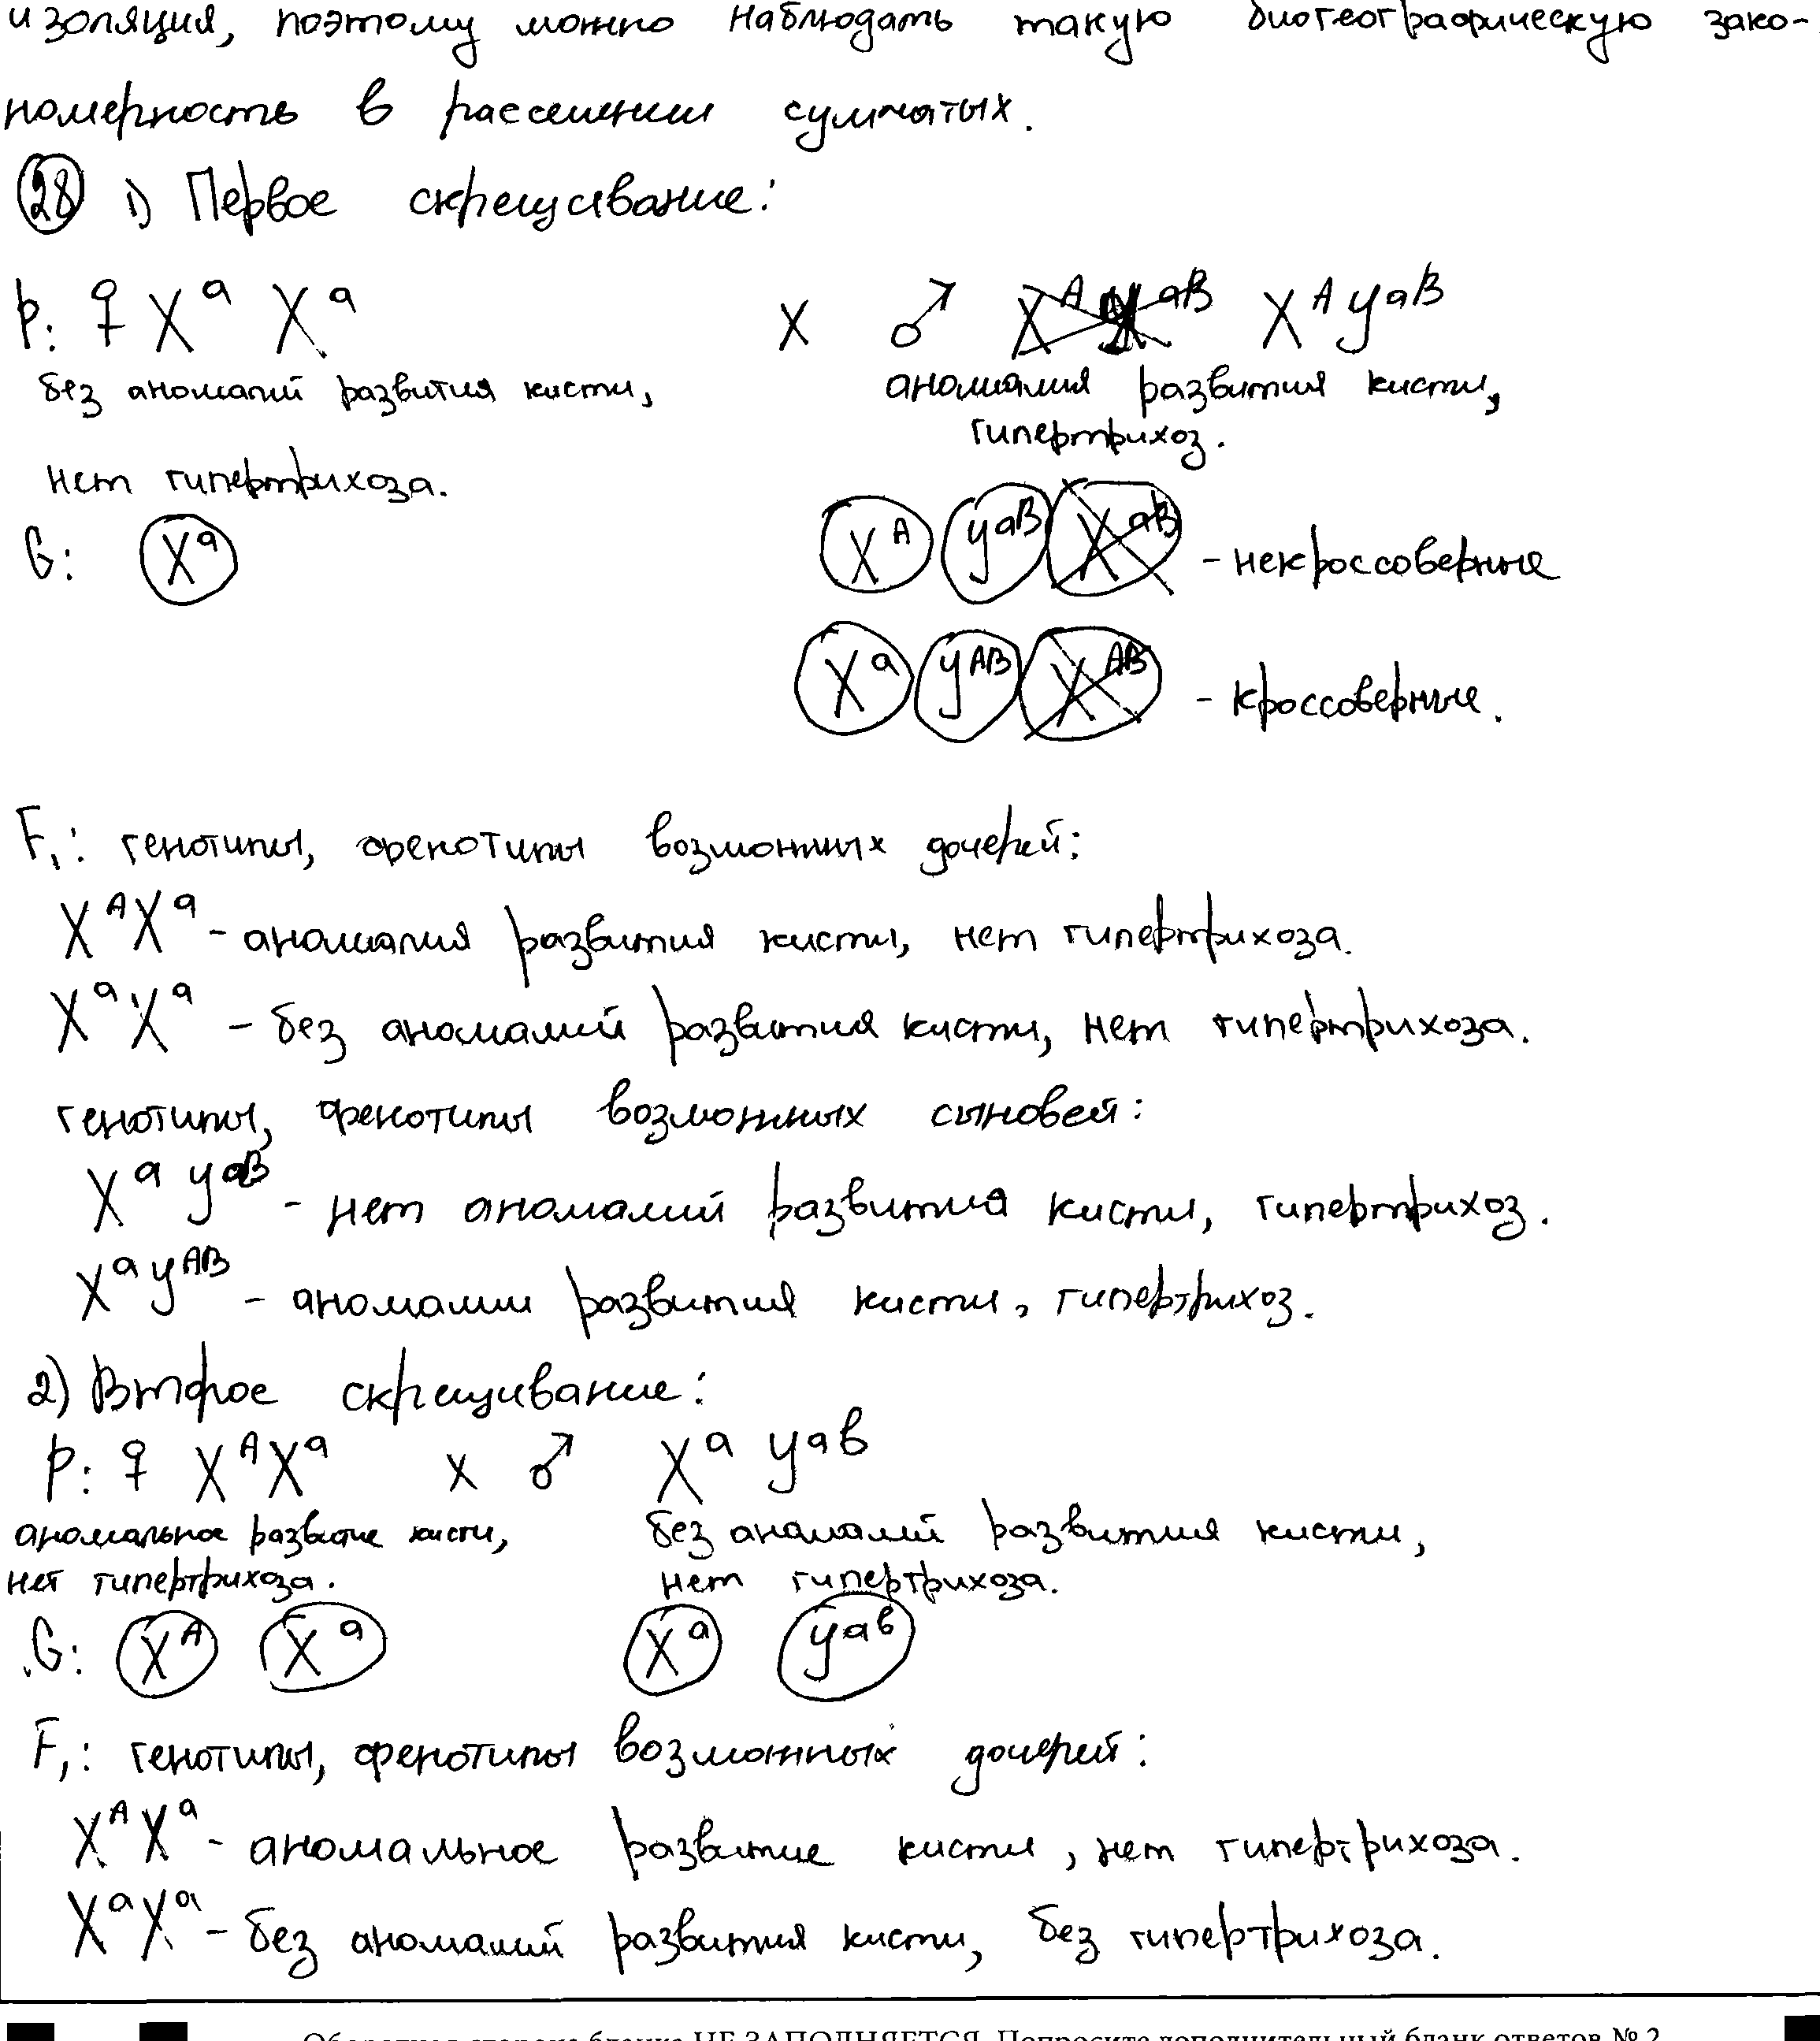 изоляция, поэтому можно наблюдать такую биогеографическую зако-
номерность в расселении сумчатых.
28 1) Первое скрещивание:
P: ♀ X^a X^a x ♂ X^A Y^aB
без аномалий развития кисти, аномалия развития кисти,
гипертрихоз.
нет гипертрихоза.
G: X^a X^A Y^aB X^aB - некроссоверные
X^a Y^AB X^AB - кроссоверные.
F1: генотипы, фенотипы возможных дочерей:
X^A X^a - аномалия развития кисти, нет гипертрихоза.
X^a X^a - без аномалий развития кисти, нет гипертрихоза.
генотипы, фенотипы возможных сыновей:
X^a Y^aB - нет аномалий развития кисти, гипертрихоз.
X^a Y^AB - аномалии развития кисти, гипертрихоз.
2) Второе скрещивание:
P: ♀ X^A X^a x ♂ X^a Y^ab
аномальное развитие кисти, без аномалий развития кисти,
нет гипертрихоза. нет гипертрихоза.
G: X^A X^a X^a Y^ab
F1: генотипы, фенотипы возможных дочерей:
X^A X^a - аномальное развитие кисти, нет гипертрихоза.
X^a X^a - без аномалий развития кисти, без гипертрихоза.
Оборотная сторона бланка НЕ ЗАПОЛНЯЕТСЯ. Попросите дополнительный бланк ответов № 2